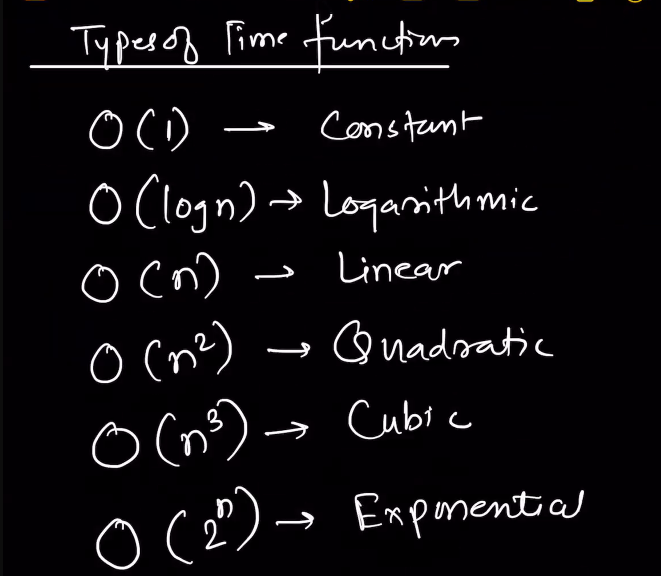 Types of Time functions
O(1) → Constant
O(logn) → Logarithmic
O(n) → Linear
O(n²) → Quadratic
O(n³) → Cubic
O(2ⁿ) → Exponential